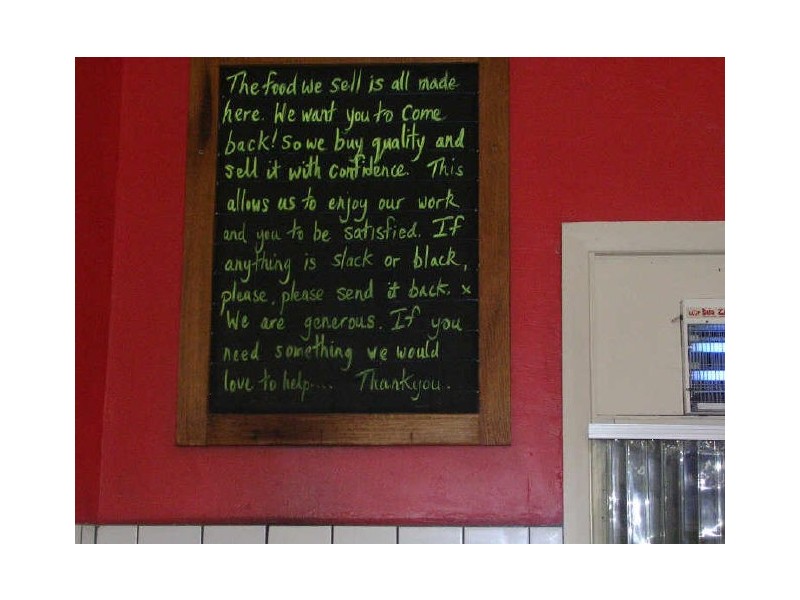 The food we sell is all made
here. We want you to come
back! So we buy quality and
sell it with confidence. This
allows us to enjoy our work
and you to be satisfied. If
anything is slack or black,
please, please send it back. x
We are generous. If you
need something we would
love to help.... Thankyou.